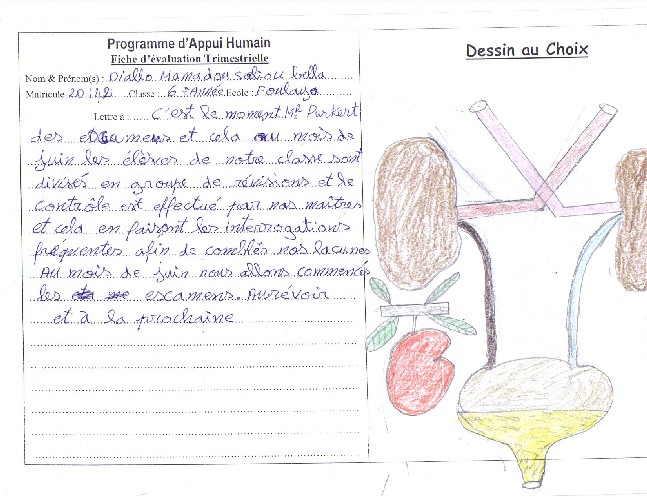 Programme d'Appui Humain
Fiche d'évaluation Trimestrielle
Nom & Prénom(s) : Diallo Mamadou Saliou bella
Matricule 20142 Classe : 6ème Année Ecole : Foulaya
Lettre à : C'est le moment Mr Purkert
des examens et cela au mois de
juin les élèves de notre classe sont
divisés en groupe de révisions et le
contrôle est effectué par nos maîtres
et cela en faisont les interrogations
fréquentes afin de comblés nos lacunes
Au mois de juin nous allons commencés
les escamens. Aurévoir
et à la prochaine
Dessin au Choix